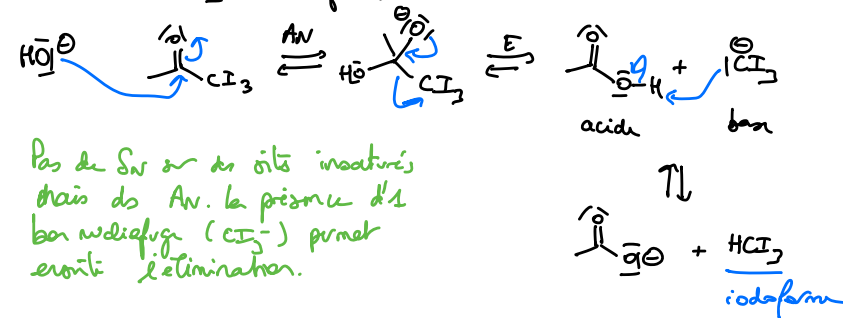 HO⊖ O CI₃ AN HO O⊖ CI₃ E O O-H + ⊖CI₃
acide base
Pas de SN sur des sites insaturés
mais des AN. la présence d'1
bon nucléofuge (CI₃⁻) permet
ensuite l'élimination.
O O⊖ + HCI₃
iodoforme